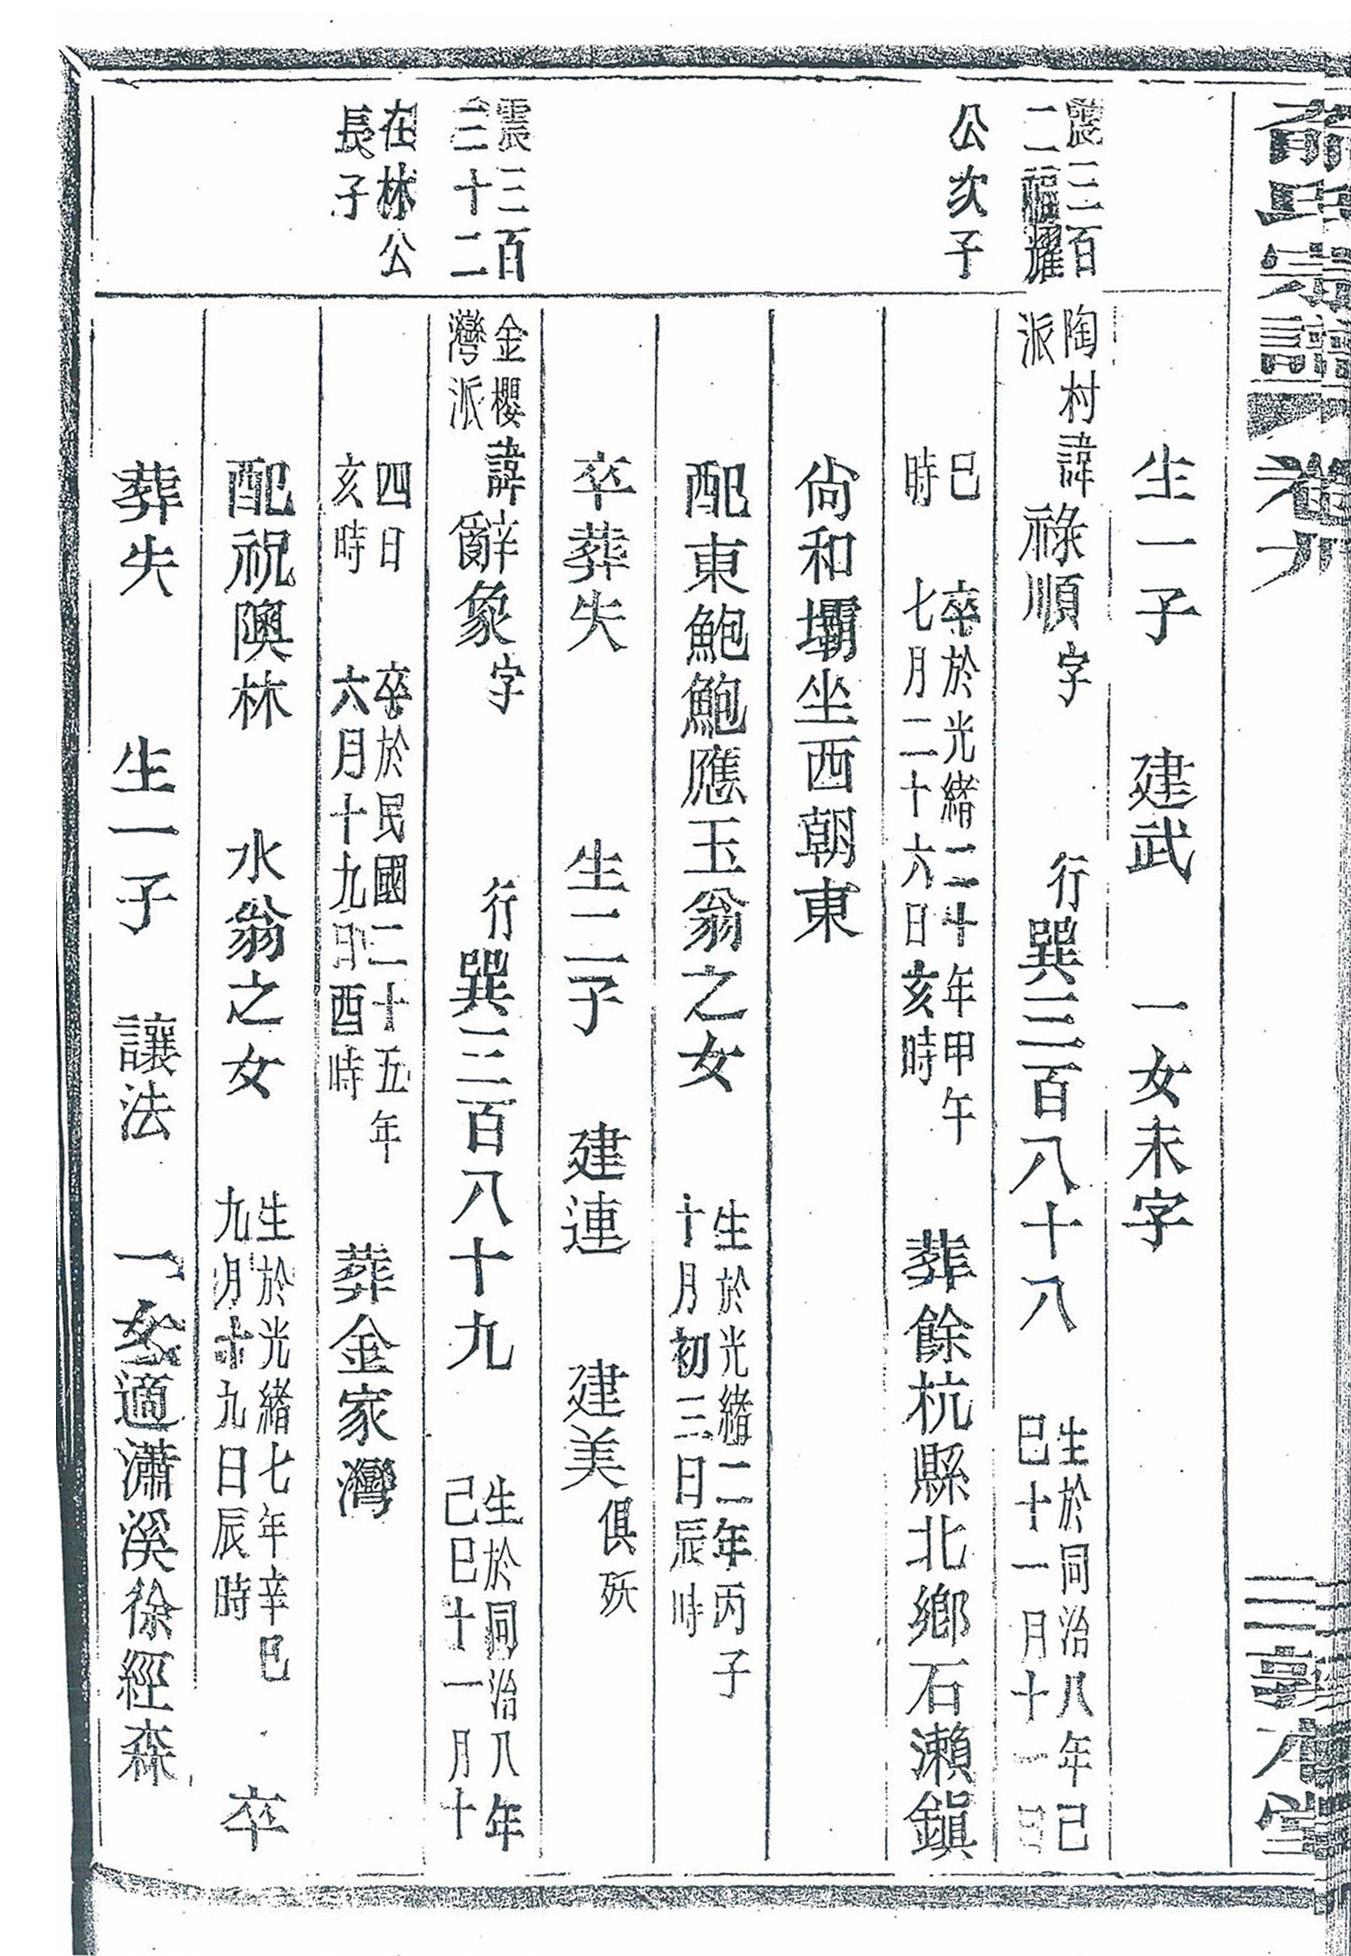 俞氏宗譜
卷六
敦本堂
生一子　建武　一女未字
震三百
二福耀
公次子
陶村
派
諱祿順字　行巽三百八十八　生於同治八年己
巳十一月十一日
巳
時
卒於光緒二十年甲午
七月二十六日亥時
葬餘杭縣北鄉石瀨鎭
尙和壩坐西朝東
配東鮑鮑應玉翁之女　生於光緒二年丙子
十月初三日辰時
卒葬失　生二子　建連　建美俱殀
震三百
三十二
在林公
長子
金櫻
灣派
諱辭象字　行巽三百八十九　生於同治八年
己巳十一月十
四日
亥時
卒於民國二十五年
六月十九日酉時
葬金家灣
配祝隩林　水翁之女　生於光緒七年辛巳
九月十九日辰時
卒
葬失　生一子　讓法　一女適瀟溪徐經森